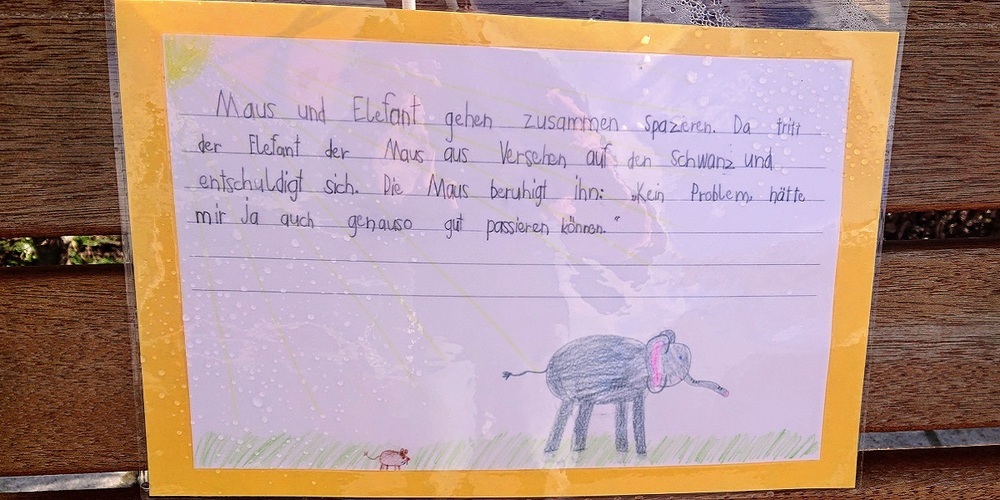 Maus und Elefant gehen zusammen spazieren. Da tritt
der Elefant der Maus aus Versehen auf den Schwanz und
entschuldigt sich. Die Maus beruhigt ihn: „Kein Problem, hätte
mir ja auch genauso gut passieren können."